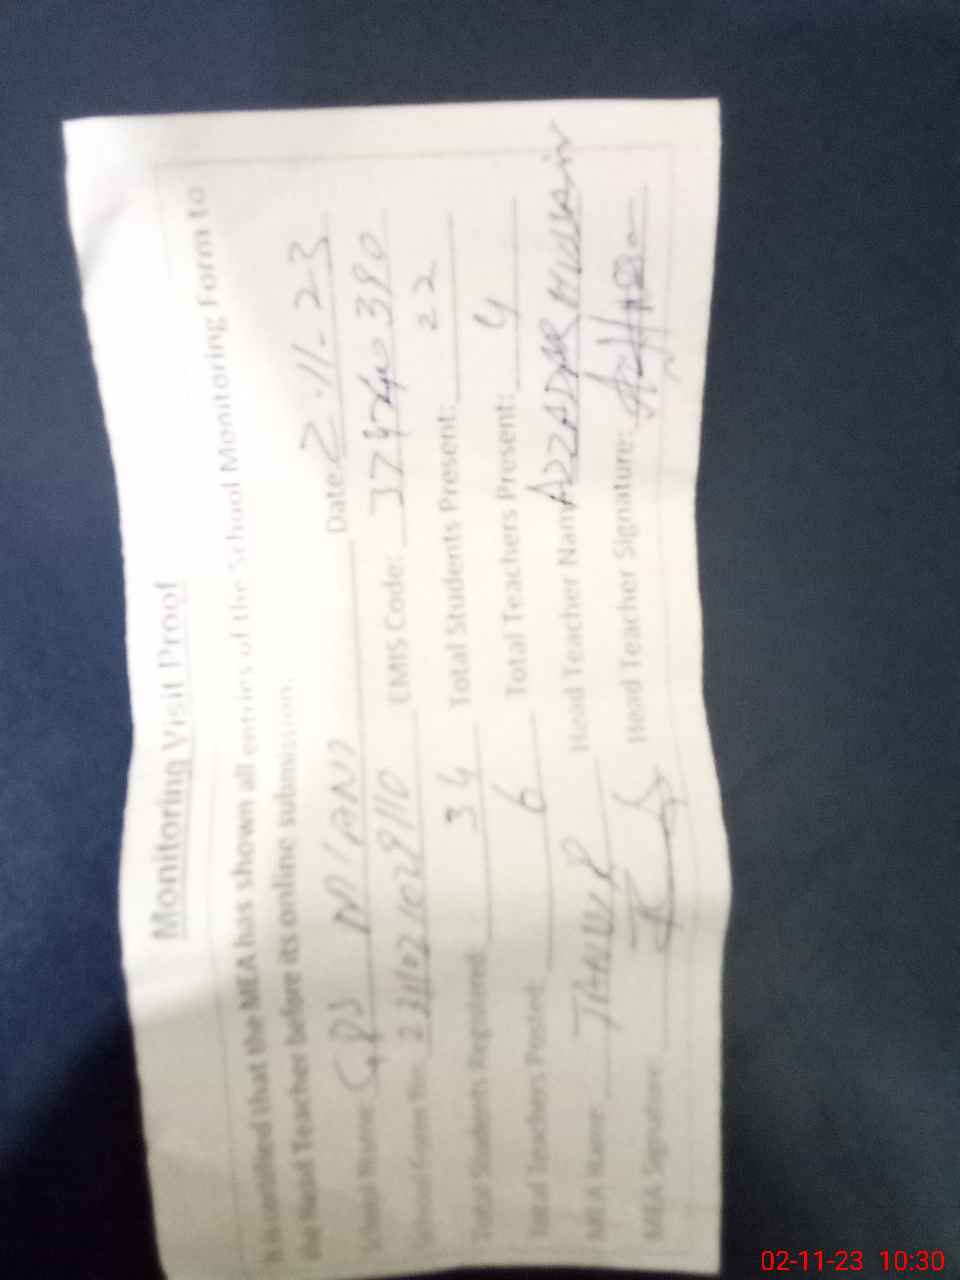 Monitoring Visit Proof
It is certified that the MEA has shown all entries of the School Monitoring Form to
the Head Teacher before its online submission.
School Name: GPS MIANI Date: 2-11-23
School Form No: EMIS Code:
Total Students Reported: 34 Total Students Present: 22
Total Teachers Posted: 6 Total Teachers Present: 4
MEA Name: Head Teacher Name: Hussain
MEA Signature: Head Teacher Signature:
02-11-23 10:30